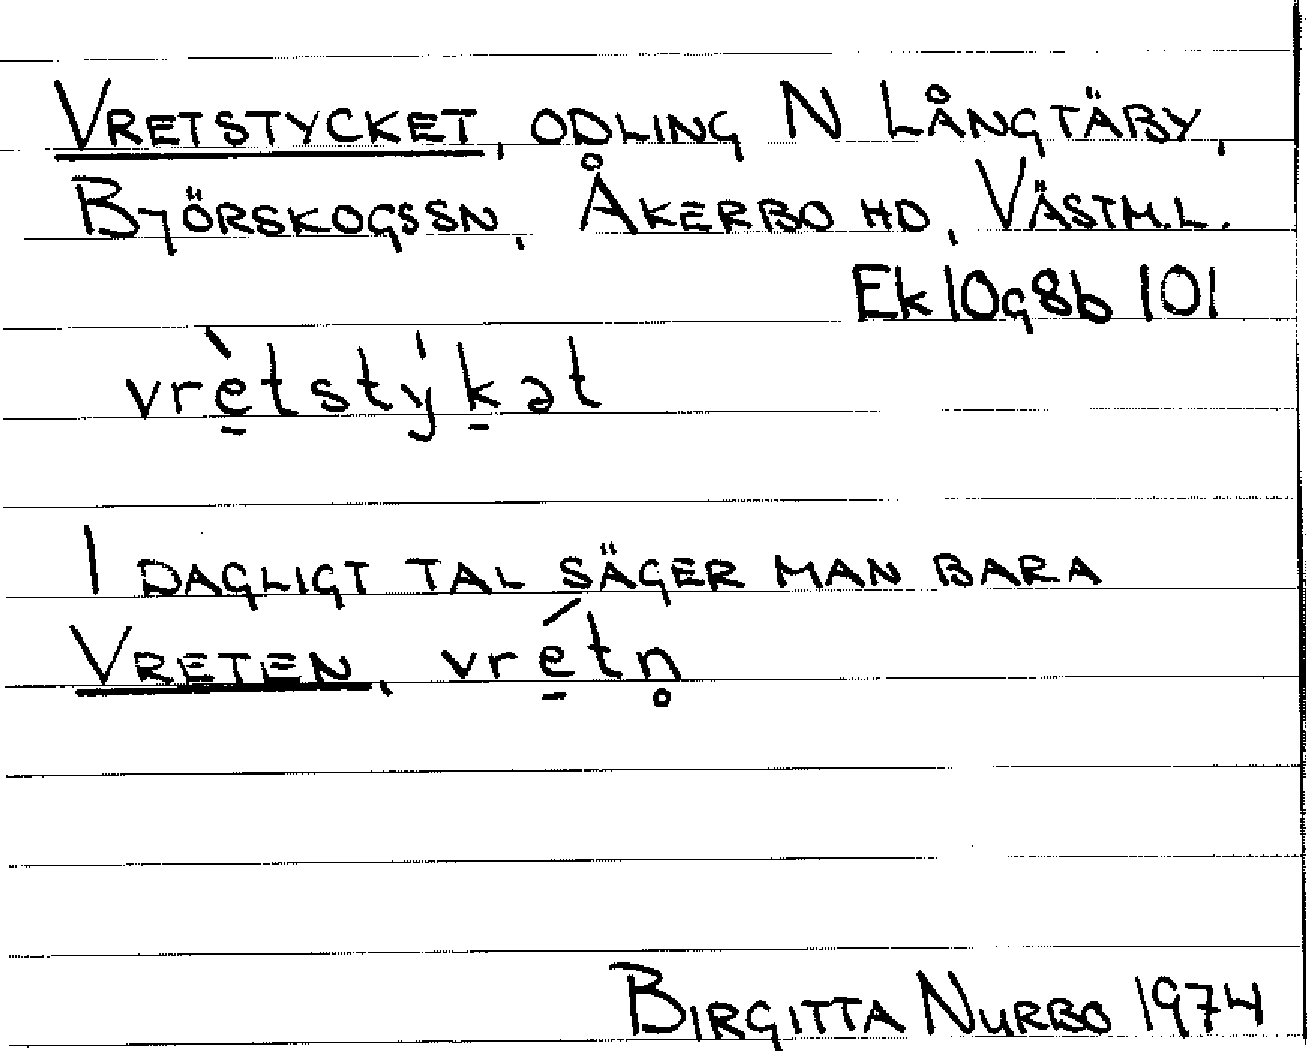 VRETSTYCKET, ODLING N LÅNGTÄBY,
BJÖRSKOGSSN, ÅKERBO HD, VÄSTM.L.
Ek 10g8b 101
vrè̱tstýḵət
I DAGLIGT TAL SÄGER MAN BARA
VRETEN, vré̱tn̥
BIRGITTA NURBO 1974